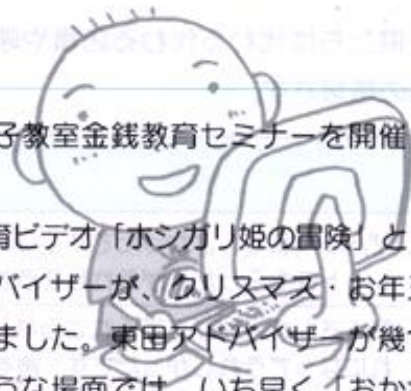 子教室金銭教育セミナーを開催
育ビデオ「ホシガリ姫の冒険」と
バイザーが、クリスマス・お年
ました。東田アドバイザーが幾
うな場面では、いち早く「おか